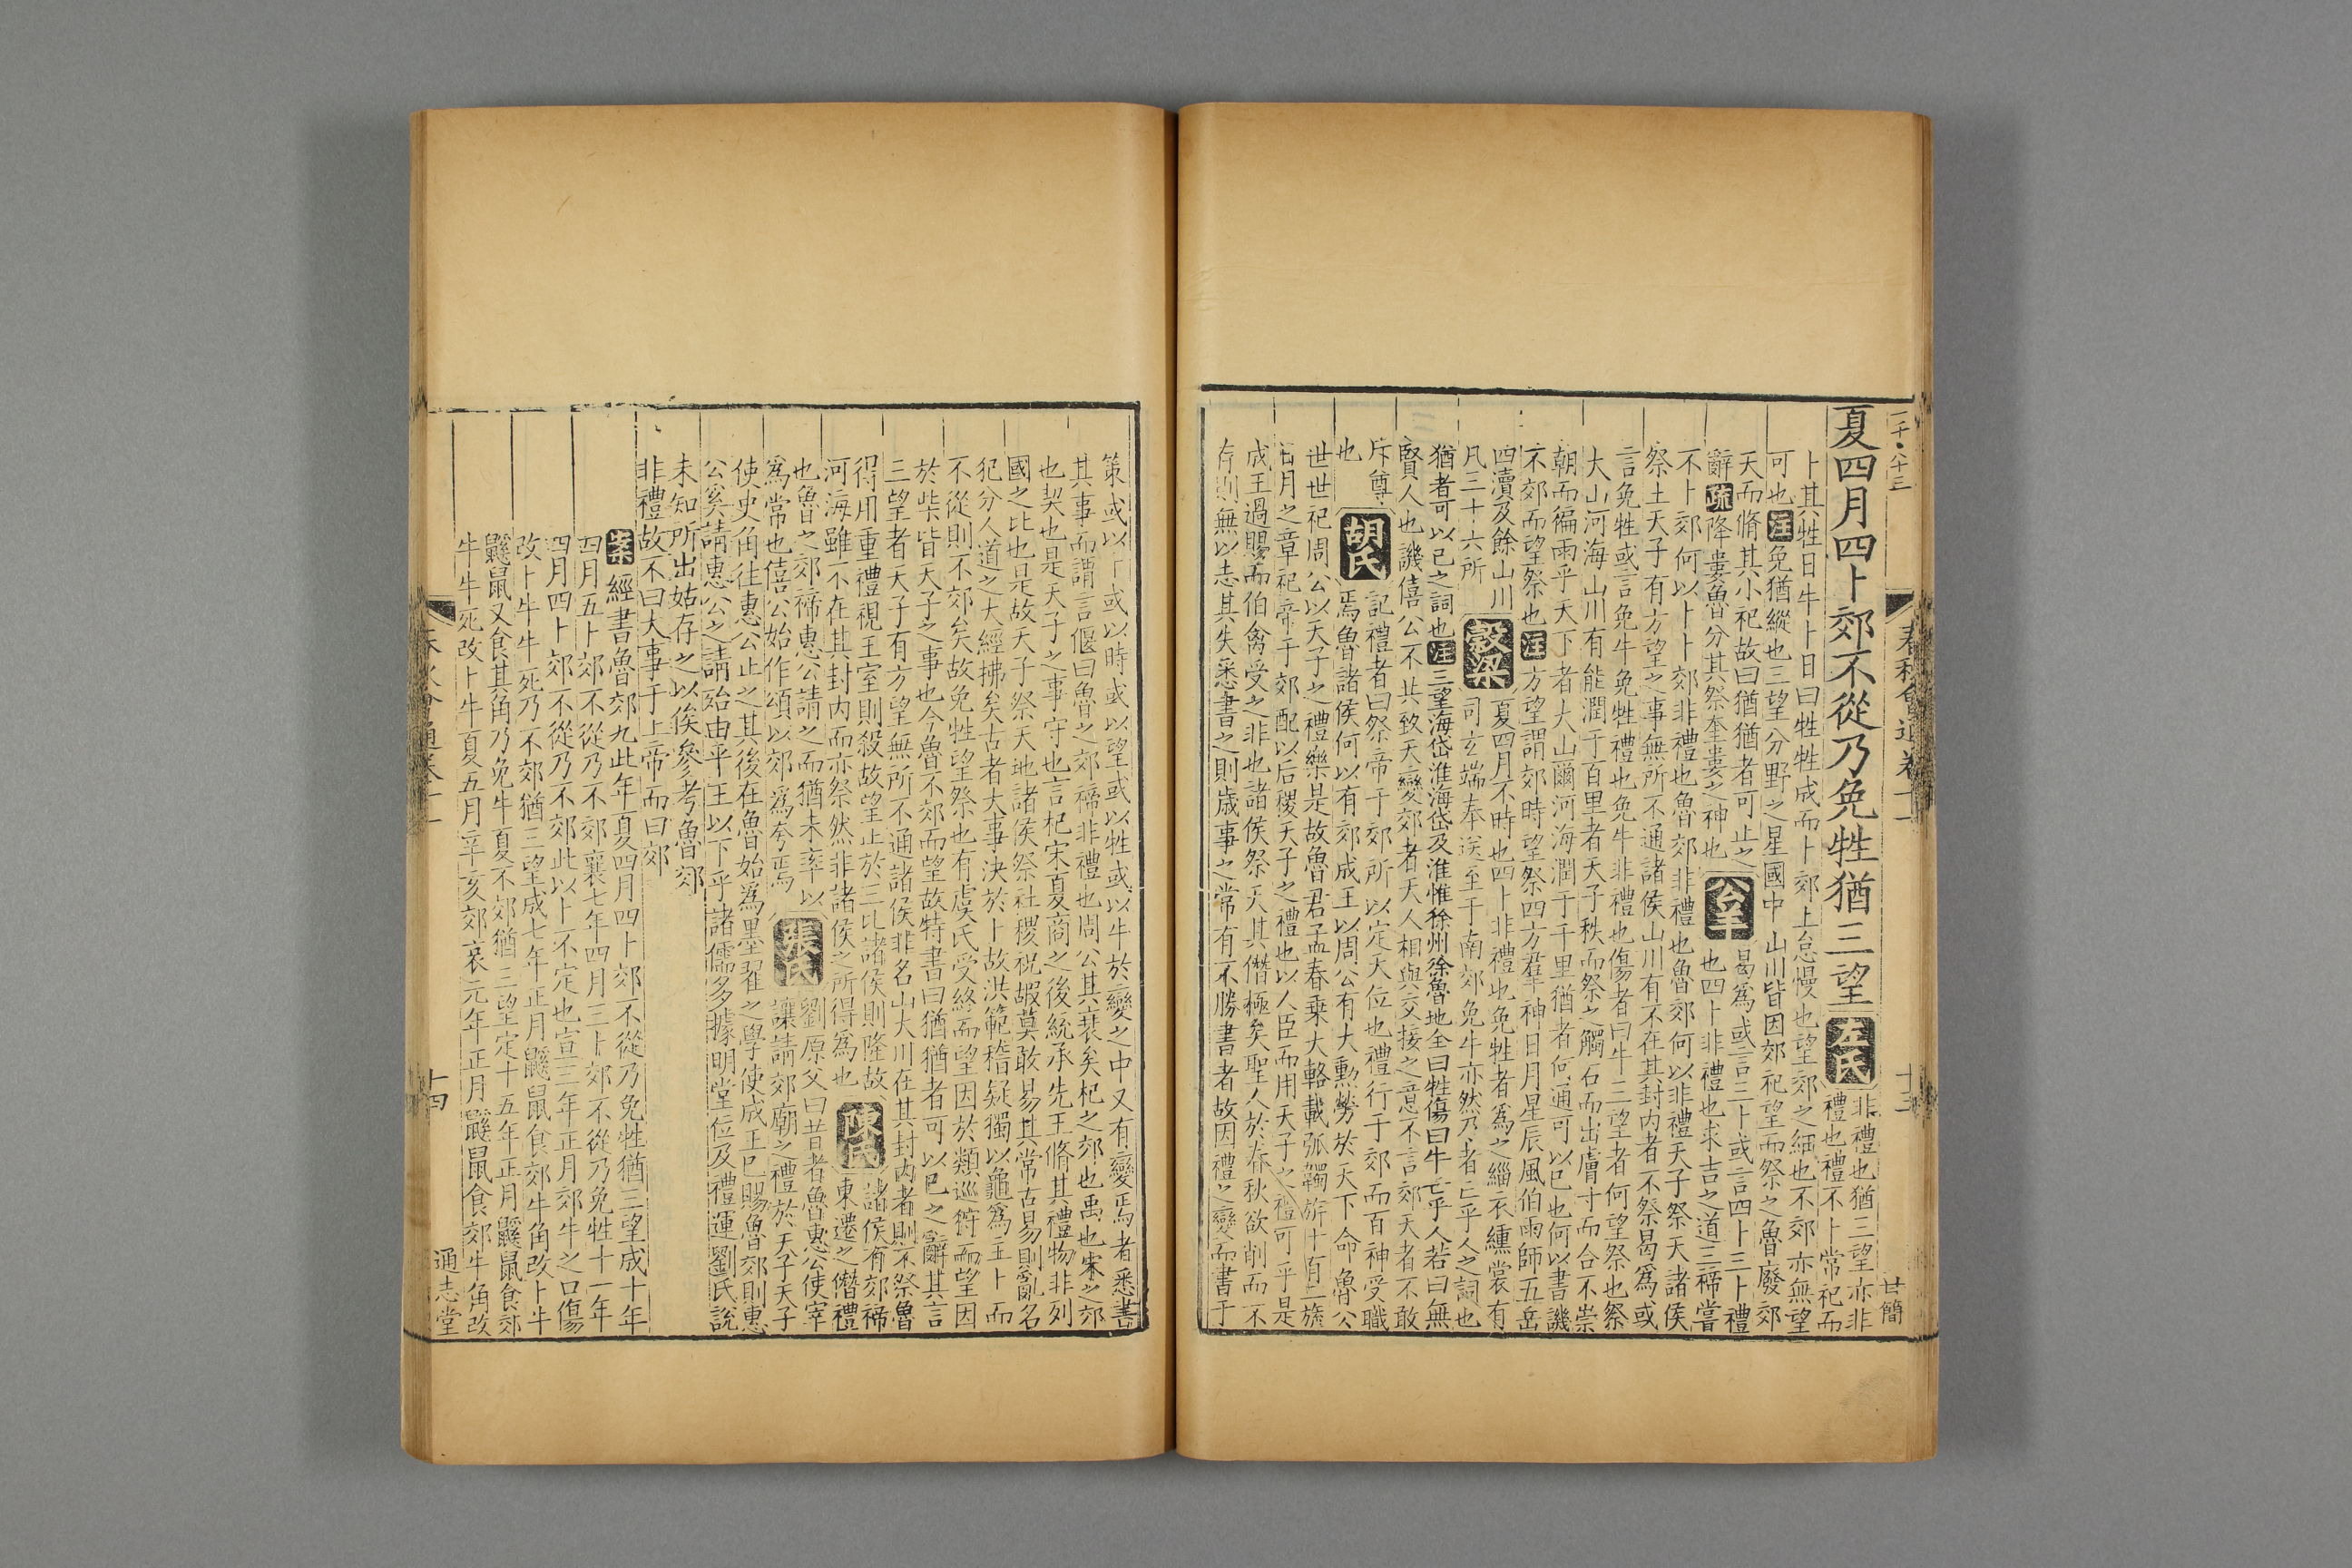 夏四月四卜郊不從乃免牲猶三望 左氏 非禮也猶三望亦非
禮也禮不卜常祀而
卜其牲日牛卜日曰牲牲成而卜郊上怠慢也望郊之細也不郊亦無望
可也 注 免猶縱也三望分野之星國中山川皆因郊祀望而祭之魯廢郊
天而脩其小祀故曰猶猶者可止之
辭 疏 降婁魯分其祭奎婁之神也 公羊 曷爲或言三卜或言四卜三卜禮
也四卜非禮也求吉之道三禘嘗
不卜郊何以卜卜郊非禮也魯郊非禮也魯郊何以非禮天子祭天諸侯
祭土天子有方望之事無所不通諸侯山川有不在其封內者不祭曷爲或
言免牲或言免牛免牲禮也免牛非禮也傷者曰牛三望者何望祭也祭
大山河海山川有能潤于百里者天子秩而祭之觸石而出膚寸而合不崇
朝而徧雨乎天下者大山爾河海潤于千里猶者何通可以已也何以書譏
不郊而望祭也 注 方望謂郊時望祭四方羣神日月星辰風伯雨師五岳
四瀆及餘山川
凡三十六所 穀梁 夏四月不時也四卜非禮也免牲者爲之緇衣纁裳有
司玄端奉送至于南郊免牛亦然乃者亡乎人之詞也
猶者可以已之詞也 注 三望海岱淮海岱及淮惟徐州徐魯地全曰牲傷曰牛亡乎人若曰無
賢人也譏僖公不共致天變郊者天人相與交接之意不言郊天者不敢
斥尊
也 胡氏 記禮者曰祭帝于郊所以定天位也禮行于郊而百神受職
焉魯諸侯何以有郊成王以周公有大勳勞於天下命魯公
世世祀周公以天子之禮樂是故魯君孟春乗大輅載弧韣旂十有二旒
日月之章祀帝于郊配以后稷天子之禮也以人臣而用天子之禮可乎是
成王過賜而伯禽受之非也諸侯祭天其僭極矣聖人於春秋欲削而不
存則無以志其失悉書之則歲事之常有不勝書者故因禮之變而書于
二千八十三
春秋會通卷十一
十三
甘簡
策或以卜或以時或以望或以牲或以牛於變之中又有變焉者悉書
其事而謂言偃曰魯之郊禘非禮也周公其衰矣杞之郊也禹也宋之郊
也契也是天子之事守也言杞宋夏商之後統承先王脩其禮物非列
國之比也是故天子祭天地諸侯祭社稷祝嘏莫敢易其常古易則亂名
犯分人道之大經拂矣古者大事決於卜故洪範稽疑獨以龜爲主卜而
不從則不郊矣故免牲望祭也有虞氏受終而望因於類巡狩而望因
於柴皆天子之事也今魯不郊而望故特書曰猶猶者可以已之辭其言
三望者天子有方望無所不通諸侯非名山大川在其封內者則不祭魯
得用重禮視王室則殺故望止於三比諸侯則隆故
河海雖不在其封內而亦祭然非諸侯之所得爲也 陳氏 諸侯有郊禘
東遷之僭禮
也魯之郊禘惠公請之而猶未率以
爲常也僖公始作頌以郊爲夸焉 張氏 劉原父曰昔者魯惠公使宰
讓請郊廟之禮於天子天子
使史角往惠公止之其後在魯始爲墨翟之學使成王已賜魯郊則惠
公奚請惠公之請殆由平王以下乎諸儒多據明堂位及禮運劉氏說
未知所出姑存之以俟參考魯郊
非禮故不曰大事于上帝而曰郊
案 經書魯郊九此年夏四月四卜郊不從乃免牲猶三望成十年
四月五卜郊不從乃不郊襄七年四月三卜郊不從乃免牲十一年
四月四卜郊不從乃不郊此以卜不定也宣三年正月郊牛之口傷
改卜牛牛死乃不郊猶三望成七年正月鼷鼠食郊牛角改卜牛
鼷鼠又食其角乃免牛夏不郊猶三望定十五年正月鼷鼠食郊
牛牛死改卜牛夏五月辛亥郊哀元年正月鼷鼠食郊牛角改
春秋會通卷十一
十四
通志堂